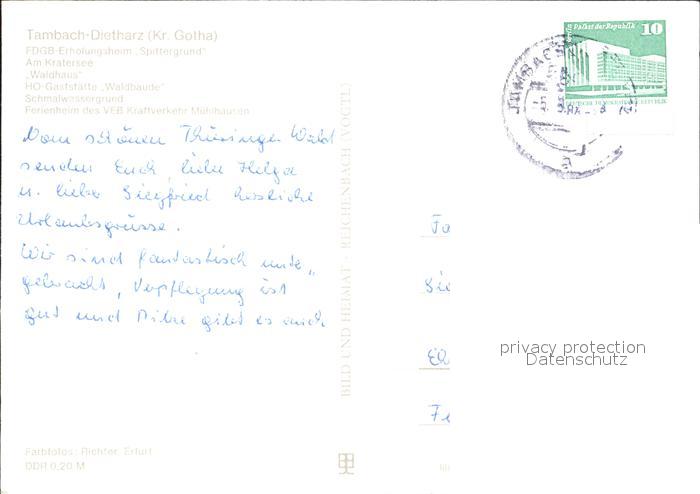 Tambach-Dietharz (Kr. Gotha)
FDGB-Erholungsheim „Spittergrund"
Am Kratersee
„Waldhaus"
HO-Gaststätte „Waldbaude"
Schmalwassergrund
Ferienheim des VEB Kraftverkehr Mühlhausen
Palast der Republik 10
DEUTSCHE DEMOKRATISCHE REPUBLIK
Vom schönen Thüringer Wald
senden Euch, liebe Helga
u. lieber Siegfried herzliche
Urlaubsgrüsse.
Wir sind fantastisch unter„
gebracht, Verpflegung ist
gut und Pilze gibt es auch
BILD UND HEIMAT · REICHENBACH (VOGTL)
Fa
Sie
Fe
privacy protection
Datenschutz
Farbfotos: Richter, Erfurt
DDR 0,20 M